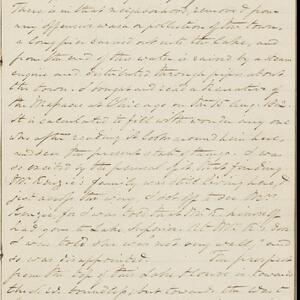 There is in that neighborhood, removed from
any offensive wash or pollution of the town,
a long pier carried out into the Lake, and
from the end of this water is raised by a steam
engine and distributed through pipes about
the town. I bought and read a narrative of
the Massacre at Chicago on the 15th Aug. 1812.
It is calculated to fill with wonder any one
who after reading it looks around him here,
and sees the present state of the I was
so excited by the perusal of it, that finding
Mr. Kinzie's family was still living here, &
just across the way, I set off to see Mr.
Kinzie, for I was told that he himself
had gone to Lake Superior. At Mr. K's door
I was told she was not very well, and
so was disappointed. The prospect
from the top of this Lake House is towards
the boundless; but towards the West